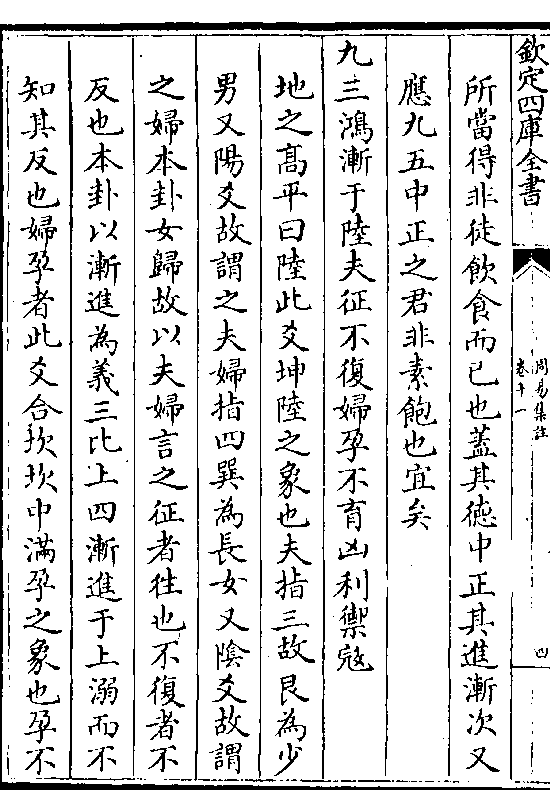 欽定四庫全書
周易集註
卷十一
四
所當得非徒飲食而已也蓋其徳中正其進漸次又
應九五中正之君非素飽也宜矣
九三鴻漸于陸夫征不復婦孕不育凶利禦寇
地之髙平曰陸此爻坤陸之象也夫指三故艮為少
男又陽爻故謂之夫婦指四巽為長女又隂爻故謂
之婦本卦女歸故以夫婦言之征者往也不復者不
反也本卦以漸進為義三比上四漸進于上溺而不
知其反也婦孕者此爻合坎坎中滿孕之象也孕不